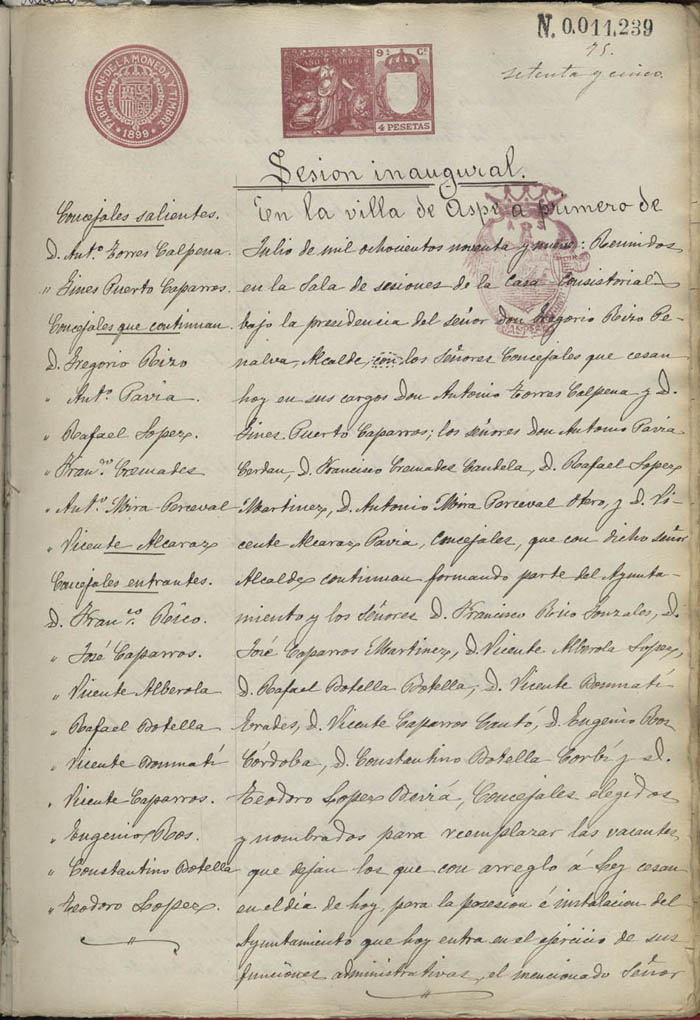 N. 0.011,239
75.
setenta y cinco
FABRICA NAL DE LA MONEDA Y TIMBRE
1899
AÑO 1899
9ª Cª
4 PESETAS
Sesion inaugural.
Concejales salientes.
D. Antº. Torres Calpena
" Gines Puerto Caparros.
Concejales que continuan
D. Gregorio Rizo
" Antº. Pavia.
" Rafael Lopez.
" Franco. Cremades
" Antº. Mira Perceval
" Vicente Alcaraz
Concejales entrantes.
D. Franco. Rico.
" José Caparros.
" Vicente Alberola
" Rafael Botella
" Vicente Bonmatí
" Vicente Caparros.
" Eugenio Ros.
" Constantino Botella
" Teodoro Lopez.
En la villa de Aspe a primero de
Julio de mil ochocientos noventa y nueve: Reunidos
en la Sala de sesiones de la Casa Consistorial
bajo la presidencia del señor don Gregorio Rizo Pe-
nalva, Alcalde, con los Señores Concejales que cesan
hoy en sus cargos Don Antonio Torres Calpena y D.
Gines Puerto Caparros; los señores Don Antonio Pavia
Cerdan, D. Francisco Cremades Candela, D. Rafael Lopez
Martinez, D. Antonio Mira Perceval Otero, y D. Vi-
cente Alcaraz Pavia, Concejales, que con dicho señor
Alcalde continuan formando parte del Ayunta-
miento y los Señores D. Francisco Rico Gonzales, D.
José Caparros Martinez, D. Vicente Alberola Lopez,
D. Rafael Botella Botella, D. Vicente Bonmatí
Erades, D. Vicente Caparros Cantó, D. Eugenio Ros
Córdoba, D. Constantino Botella Corbí y D.
Teodoro Lopez Deviá, Concejales elegidos
y nombrados para reemplazar las vacantes
que dejan los que con arreglo á Ley cesan
en el dia de hoy, para la posesion é instalacion del
Ayuntamiento que hoy entra en el ejercicio de sus
funciones administrativas, el mencionado Señor